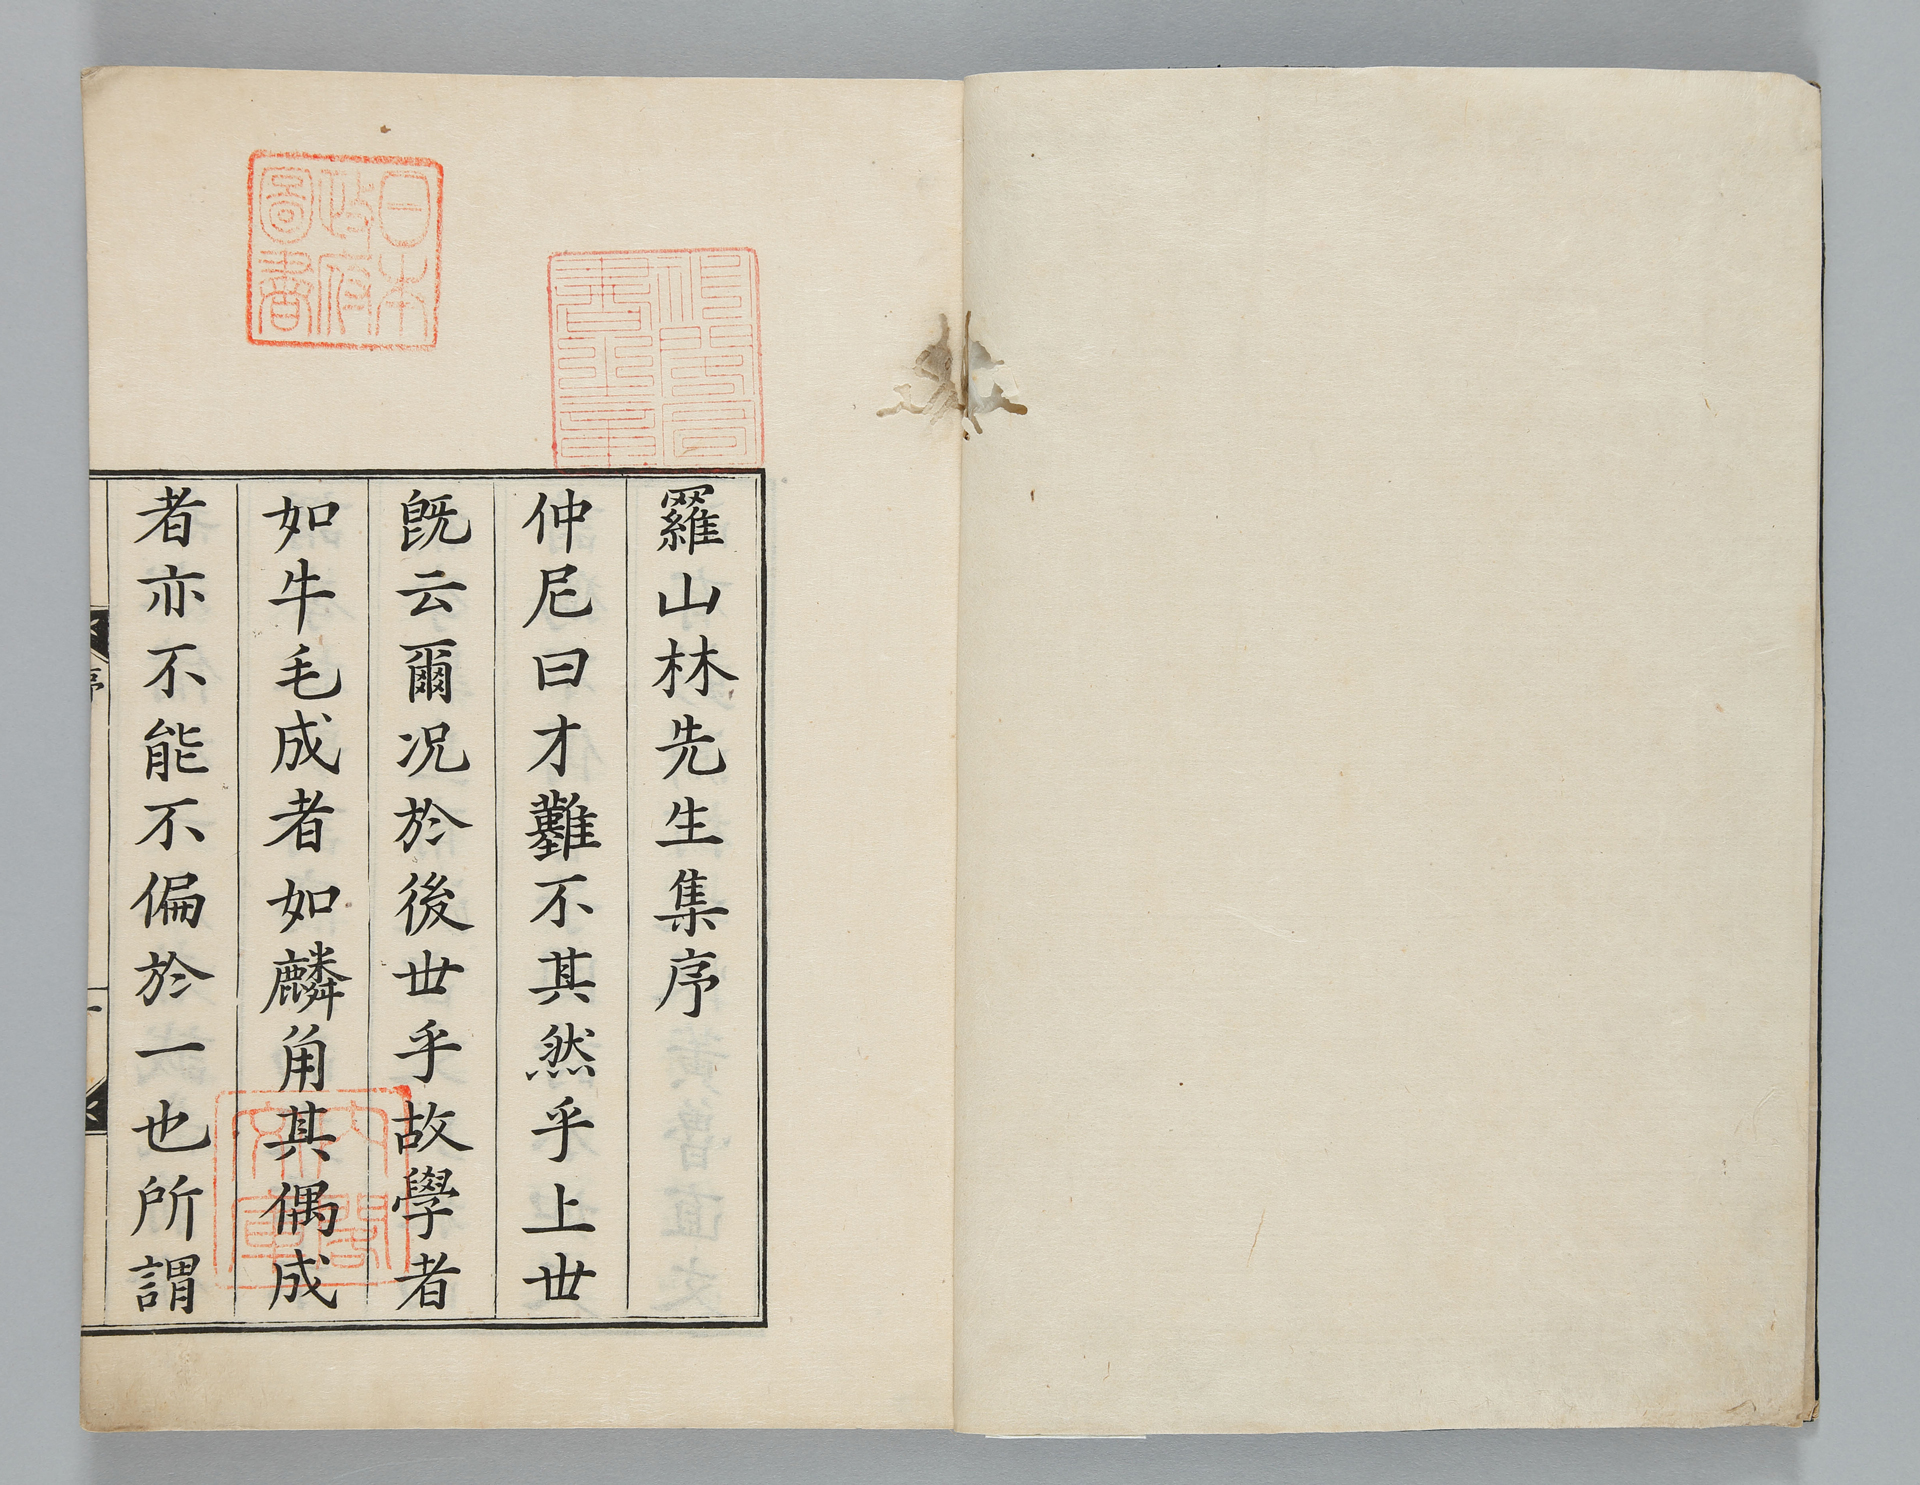 羅山林先生集序
仲尼曰才難不其然乎上世
既云爾况於後世乎故學者
如牛毛成者如麟角其偶成
者亦不能不偏於一也所謂
序
一
日本
政府
圖書
内閣
文庫